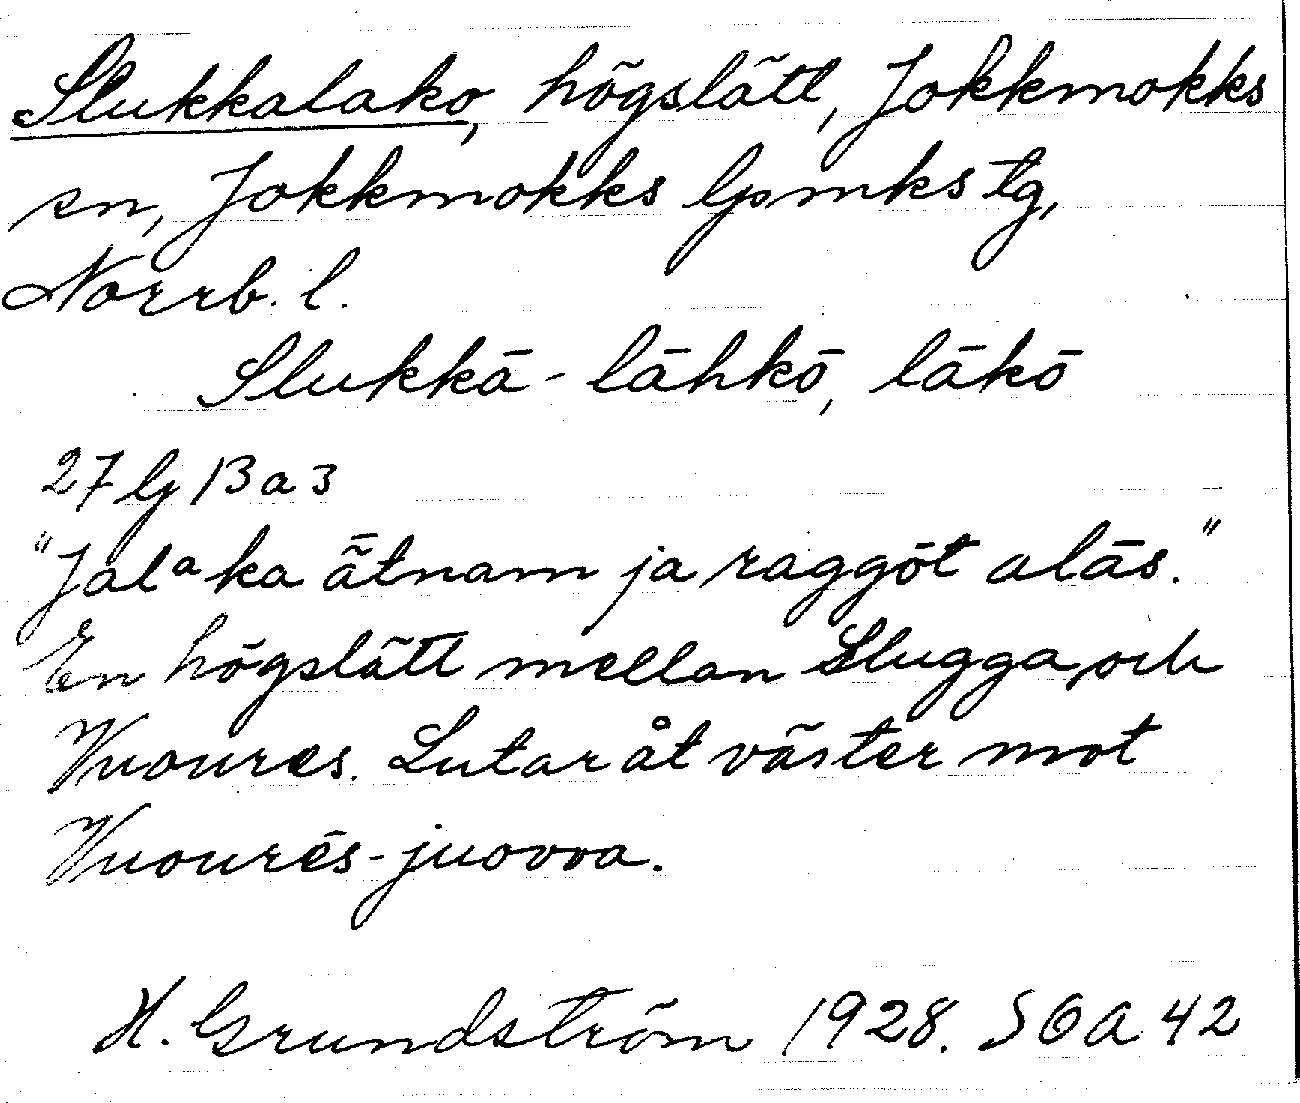 Slukkalako, högslätt, Jokkmokks
sn, Jokkmokks lpmks tg,
Norrb. l.
Slukkā-lāhkō, lākō
27 Ij 13 a 3
"Jalᵃka ātnam ja raggōt alās."
En högslätt mellan Slugga och
Vuoures. Lutar åt väster mot
Vuourēs-juovva.
H. Grundström 1928. SOA 42